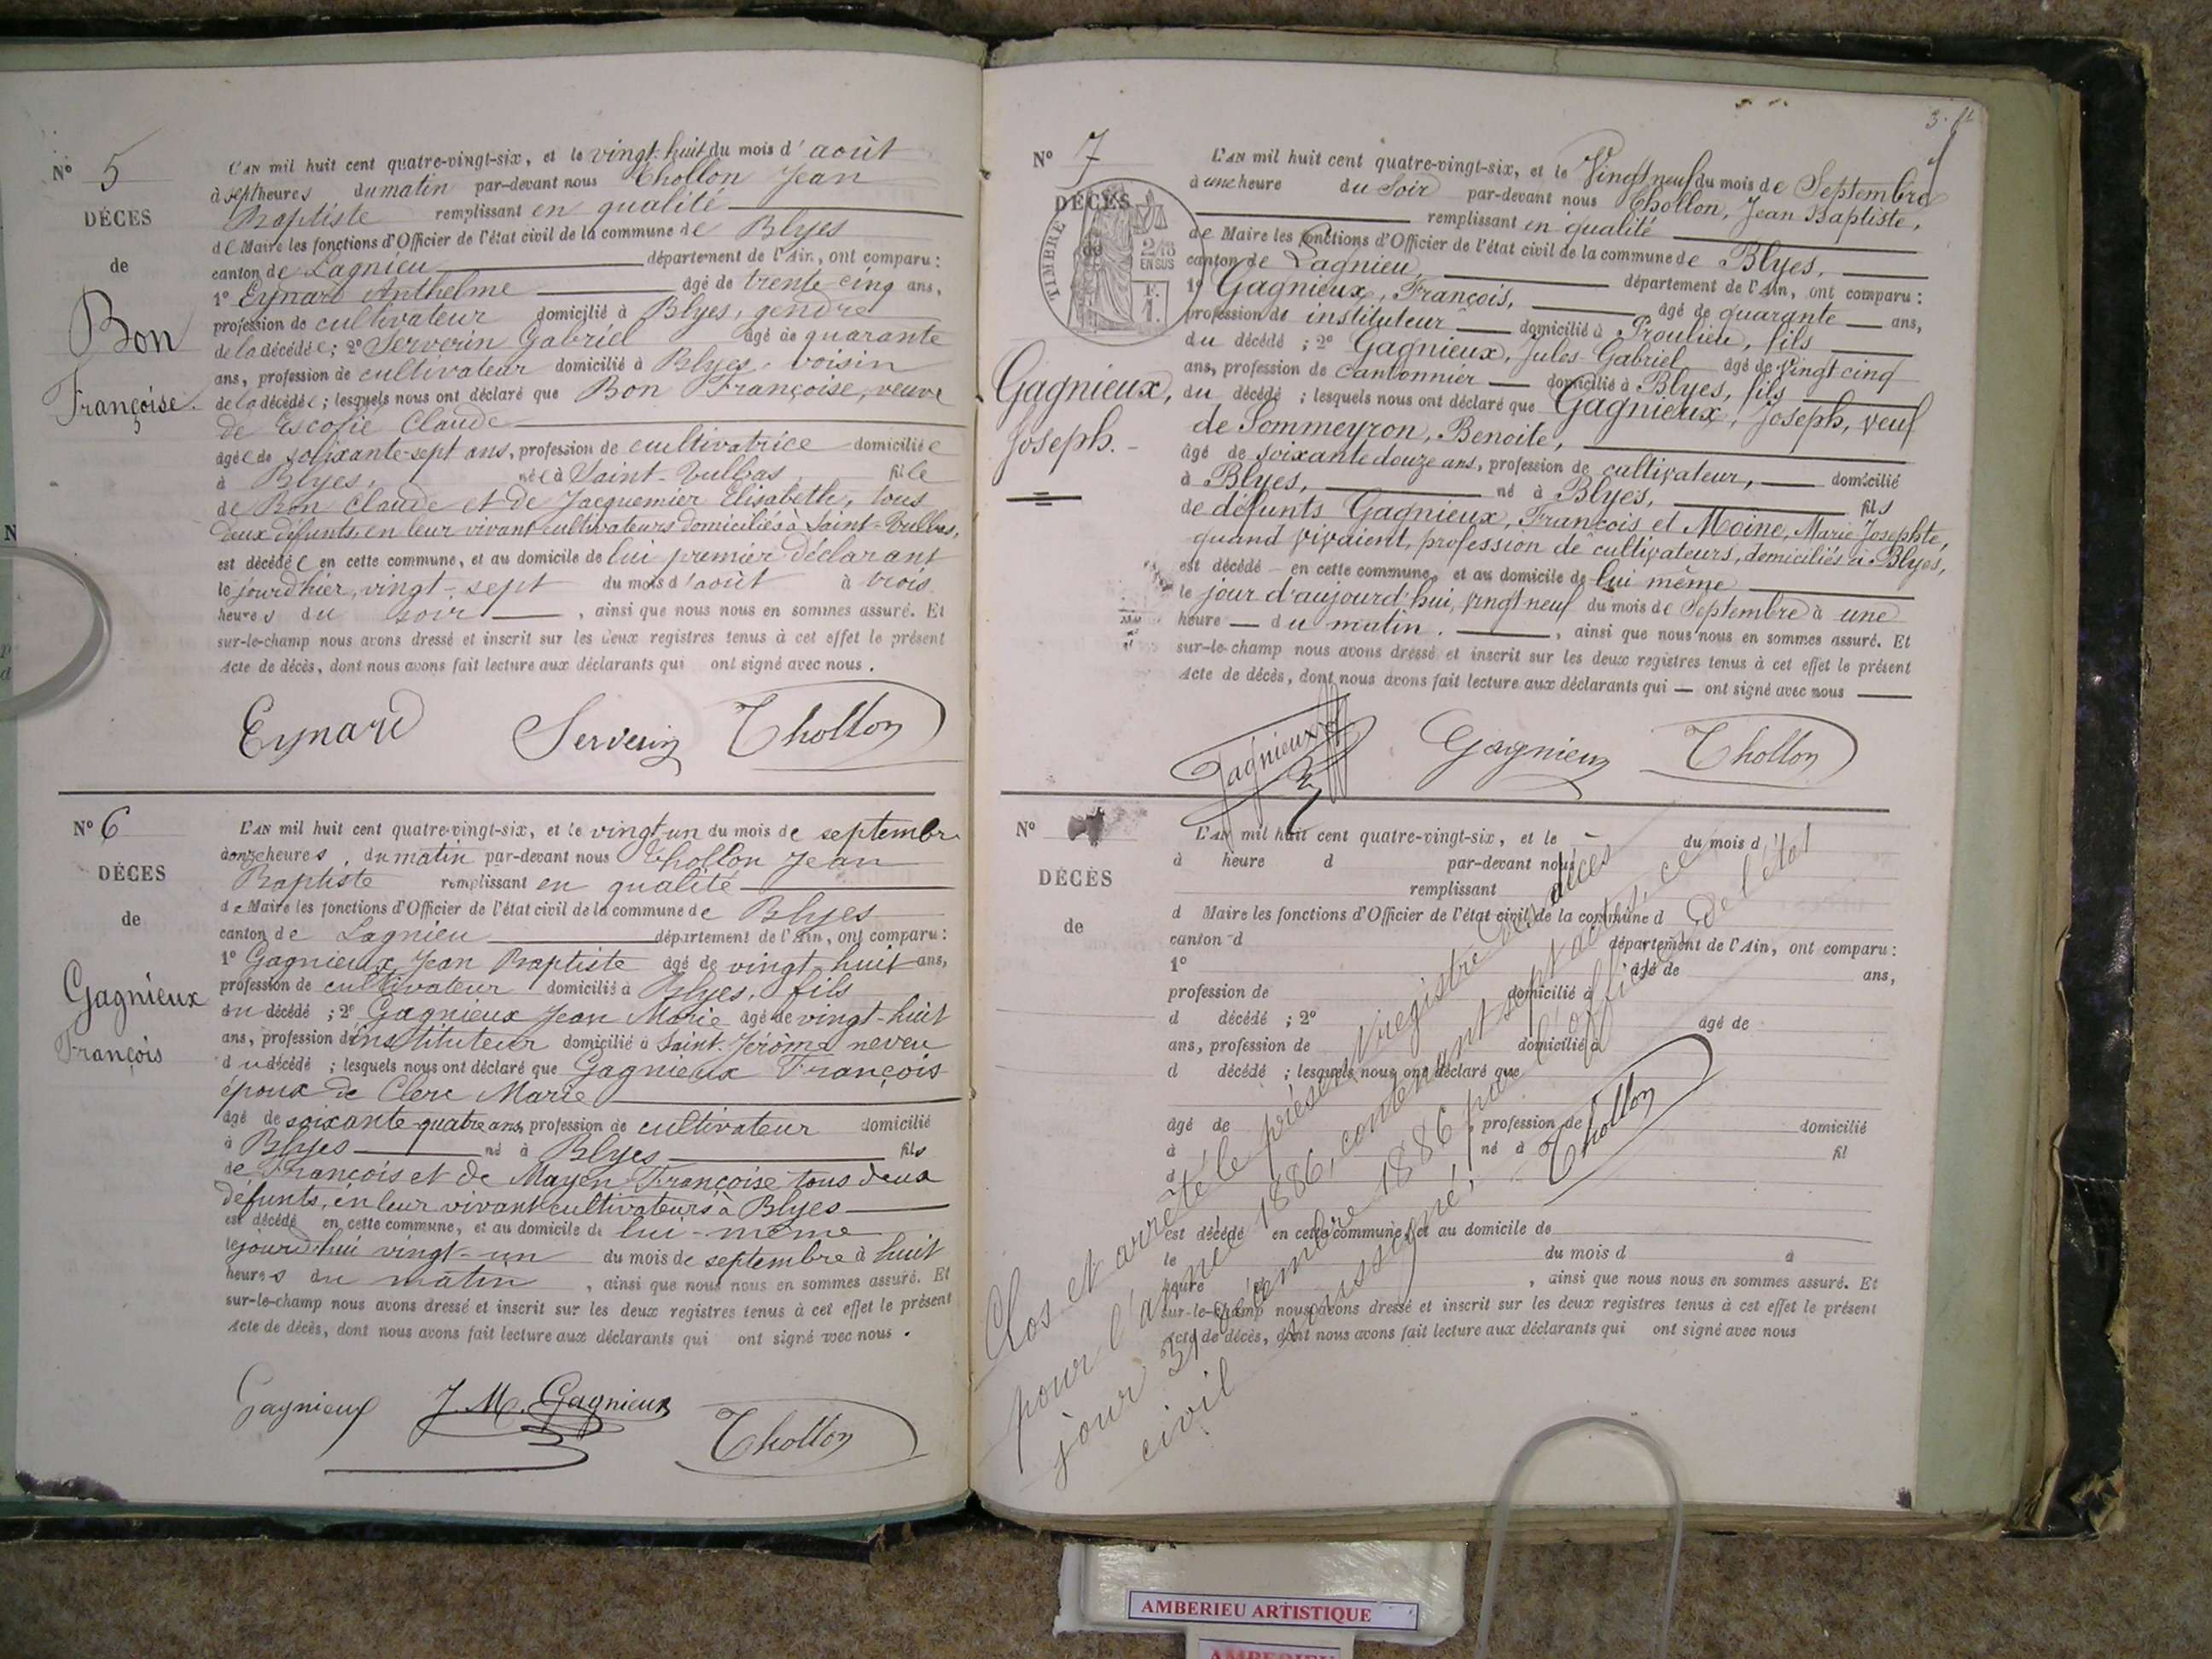 N° 5
DÉCES
de
Bon
Françoise.
L'AN mil huit cent quatre-vingt-six, et le vingt-huit du mois d'août
à sept heures du matin par-devant nous Chollon Jean
Baptiste remplissant en qualité
de Maire les fonctions d'Officier de l'état civil de la commune de Blyes
canton de Lagnieu département de l'Ain, ont comparu :
1° Eynard Anthelme âgé de trente cinq ans,
profession de cultivateur domicilié à Blyes, gendre
de la décédée ; 2° Serverin Gabriel âgé de quarante
ans, profession de cultivateur domicilié à Blyes, voisin
de la décédée ; lesquels nous ont déclaré que Bon Françoise, veuve
de Escofié Claude
âgée de soixante-sept ans, profession de cultivatrice domiciliée
à Blyes, née à Saint-Vulbas, fille
de Bon Claude et de Jacquemier Elisabeth, tous
deux défunts, en leur vivant cultivateurs domiciliés à Saint-Vulbas,
est décédée en cette commune, et au domicile de lui premier déclarant
le jour d'hier, vingt-sept du mois d'août à trois
heures du soir , ainsi que nous nous en sommes assuré. Et
sur-le-champ nous avons dressé et inscrit sur les deux registres tenus à cet effet le présent
Acte de décès, dont nous avons fait lecture aux déclarants qui ont signé avec nous.
Eynard Serverin Chollon
N° 6
DÉCES
de
Gagnieux
François
L'AN mil huit cent quatre-vingt-six, et le vingt-un du mois de septembre
à onze heures, du matin par-devant nous Chollon Jean
Baptiste remplissant en qualité
de Maire les fonctions d'Officier de l'état civil de la commune de Blyes
canton de Lagnieu département de l'Ain, ont comparu :
1° Gagnieux Jean Baptiste âgé de vingt-huit ans,
profession de cultivateur domicilié à Blyes, fils
du décédé ; 2° Gagnieux Jean Marie âgé de vingt-huit
ans, profession d'instituteur domicilié à Saint-Jérôme neveu
du décédé ; lesquels nous ont déclaré que Gagnieux François
époux de Clerc Marie
âgé de soixante-quatre ans, profession de cultivateur domicilié
à Blyes né à Blyes fils
de François et de Mayen Françoise tous deux
défunts, en leur vivant cultivateurs à Blyes
est décédé en cette commune, et au domicile de lui-même
le jourd'hui vingt-un du mois de septembre à huit
heures du matin , ainsi que nous nous en sommes assuré. Et
sur-le-champ nous avons dressé et inscrit sur les deux registres tenus à cet effet le présent
Acte de décès, dont nous avons fait lecture aux déclarants qui ont signé avec nous.
Gagnieux J. M. Gagnieux Chollon
N° 7
DÉCÈS
de
TIMBRE
2/10
EN SUS
F.
1.
Gagnieux,
Joseph.
L'AN mil huit cent quatre-vingt-six, et le Vingt neuf du mois de Septembre
à une heure du Soir par-devant nous Chollon, Jean Baptiste,
remplissant en qualité
de Maire les fonctions d'Officier de l'état civil de la commune de Blyes,
canton de Lagnieu, département de l'Ain, ont comparu :
1° Gagnieux, François, âgé de quarante ans,
profession de instituteur domicilié à Proulieu, fils
du décédé ; 2° Gagnieux, Jules-Gabriel âgé de vingt cinq
ans, profession de cantonnier domicilié à Blyes, fils
du décédé ; lesquels nous ont déclaré que Gagnieux, Joseph, veuf
de Sommeyron, Benoite,
âgé de soixante douze ans, profession de cultivateur, domicilié
à Blyes, né à Blyes, fils
de défunts Gagnieux, François et Moine, Marie Josephte,
quand vivaient, profession de cultivateurs, domiciliés à Blyes,
est décédé en cette commune, et au domicile de lui même
le jour d'aujourd'hui, vingt neuf du mois de Septembre à une
heure du matin. , ainsi que nous nous en sommes assuré. Et
sur-le-champ nous avons dressé et inscrit sur les deux registres tenus à cet effet le présent
Acte de décès, dont nous avons fait lecture aux déclarants qui ont signé avec nous
Gagnieux Gagnieux Chollon
N°
DÉCÈS
de
L'AN mil huit cent quatre-vingt-six, et le du mois d
à heure d par-devant nous
remplissant
d Maire les fonctions d'Officier de l'état civil de la commune d
canton d département de l'Ain, ont comparu :
1° âgé de ans,
profession de domicilié à
d décédé ; 2° âgé de
ans, profession de domicilié à
d décédé ; lesquels nous ont déclaré que
âgé de , profession de domicilié
à né à fil
d
est décédé en cette commune, et au domicile de
le du mois d à
heure , ainsi que nous nous en sommes assuré. Et
sur-le-champ nous avons dressé et inscrit sur les deux registres tenus à cet effet le présent
Acte de décès, dont nous avons fait lecture aux déclarants qui ont signé avec nous
Clos et arrêté le présent registre des décès
pour l'année 1886, contenant sept actes, ce
jour 31 décembre 1886 par l'officier de l'état
civil soussigné,
Chollon
AMBERIEU ARTISTIQUE
AMBERIEU